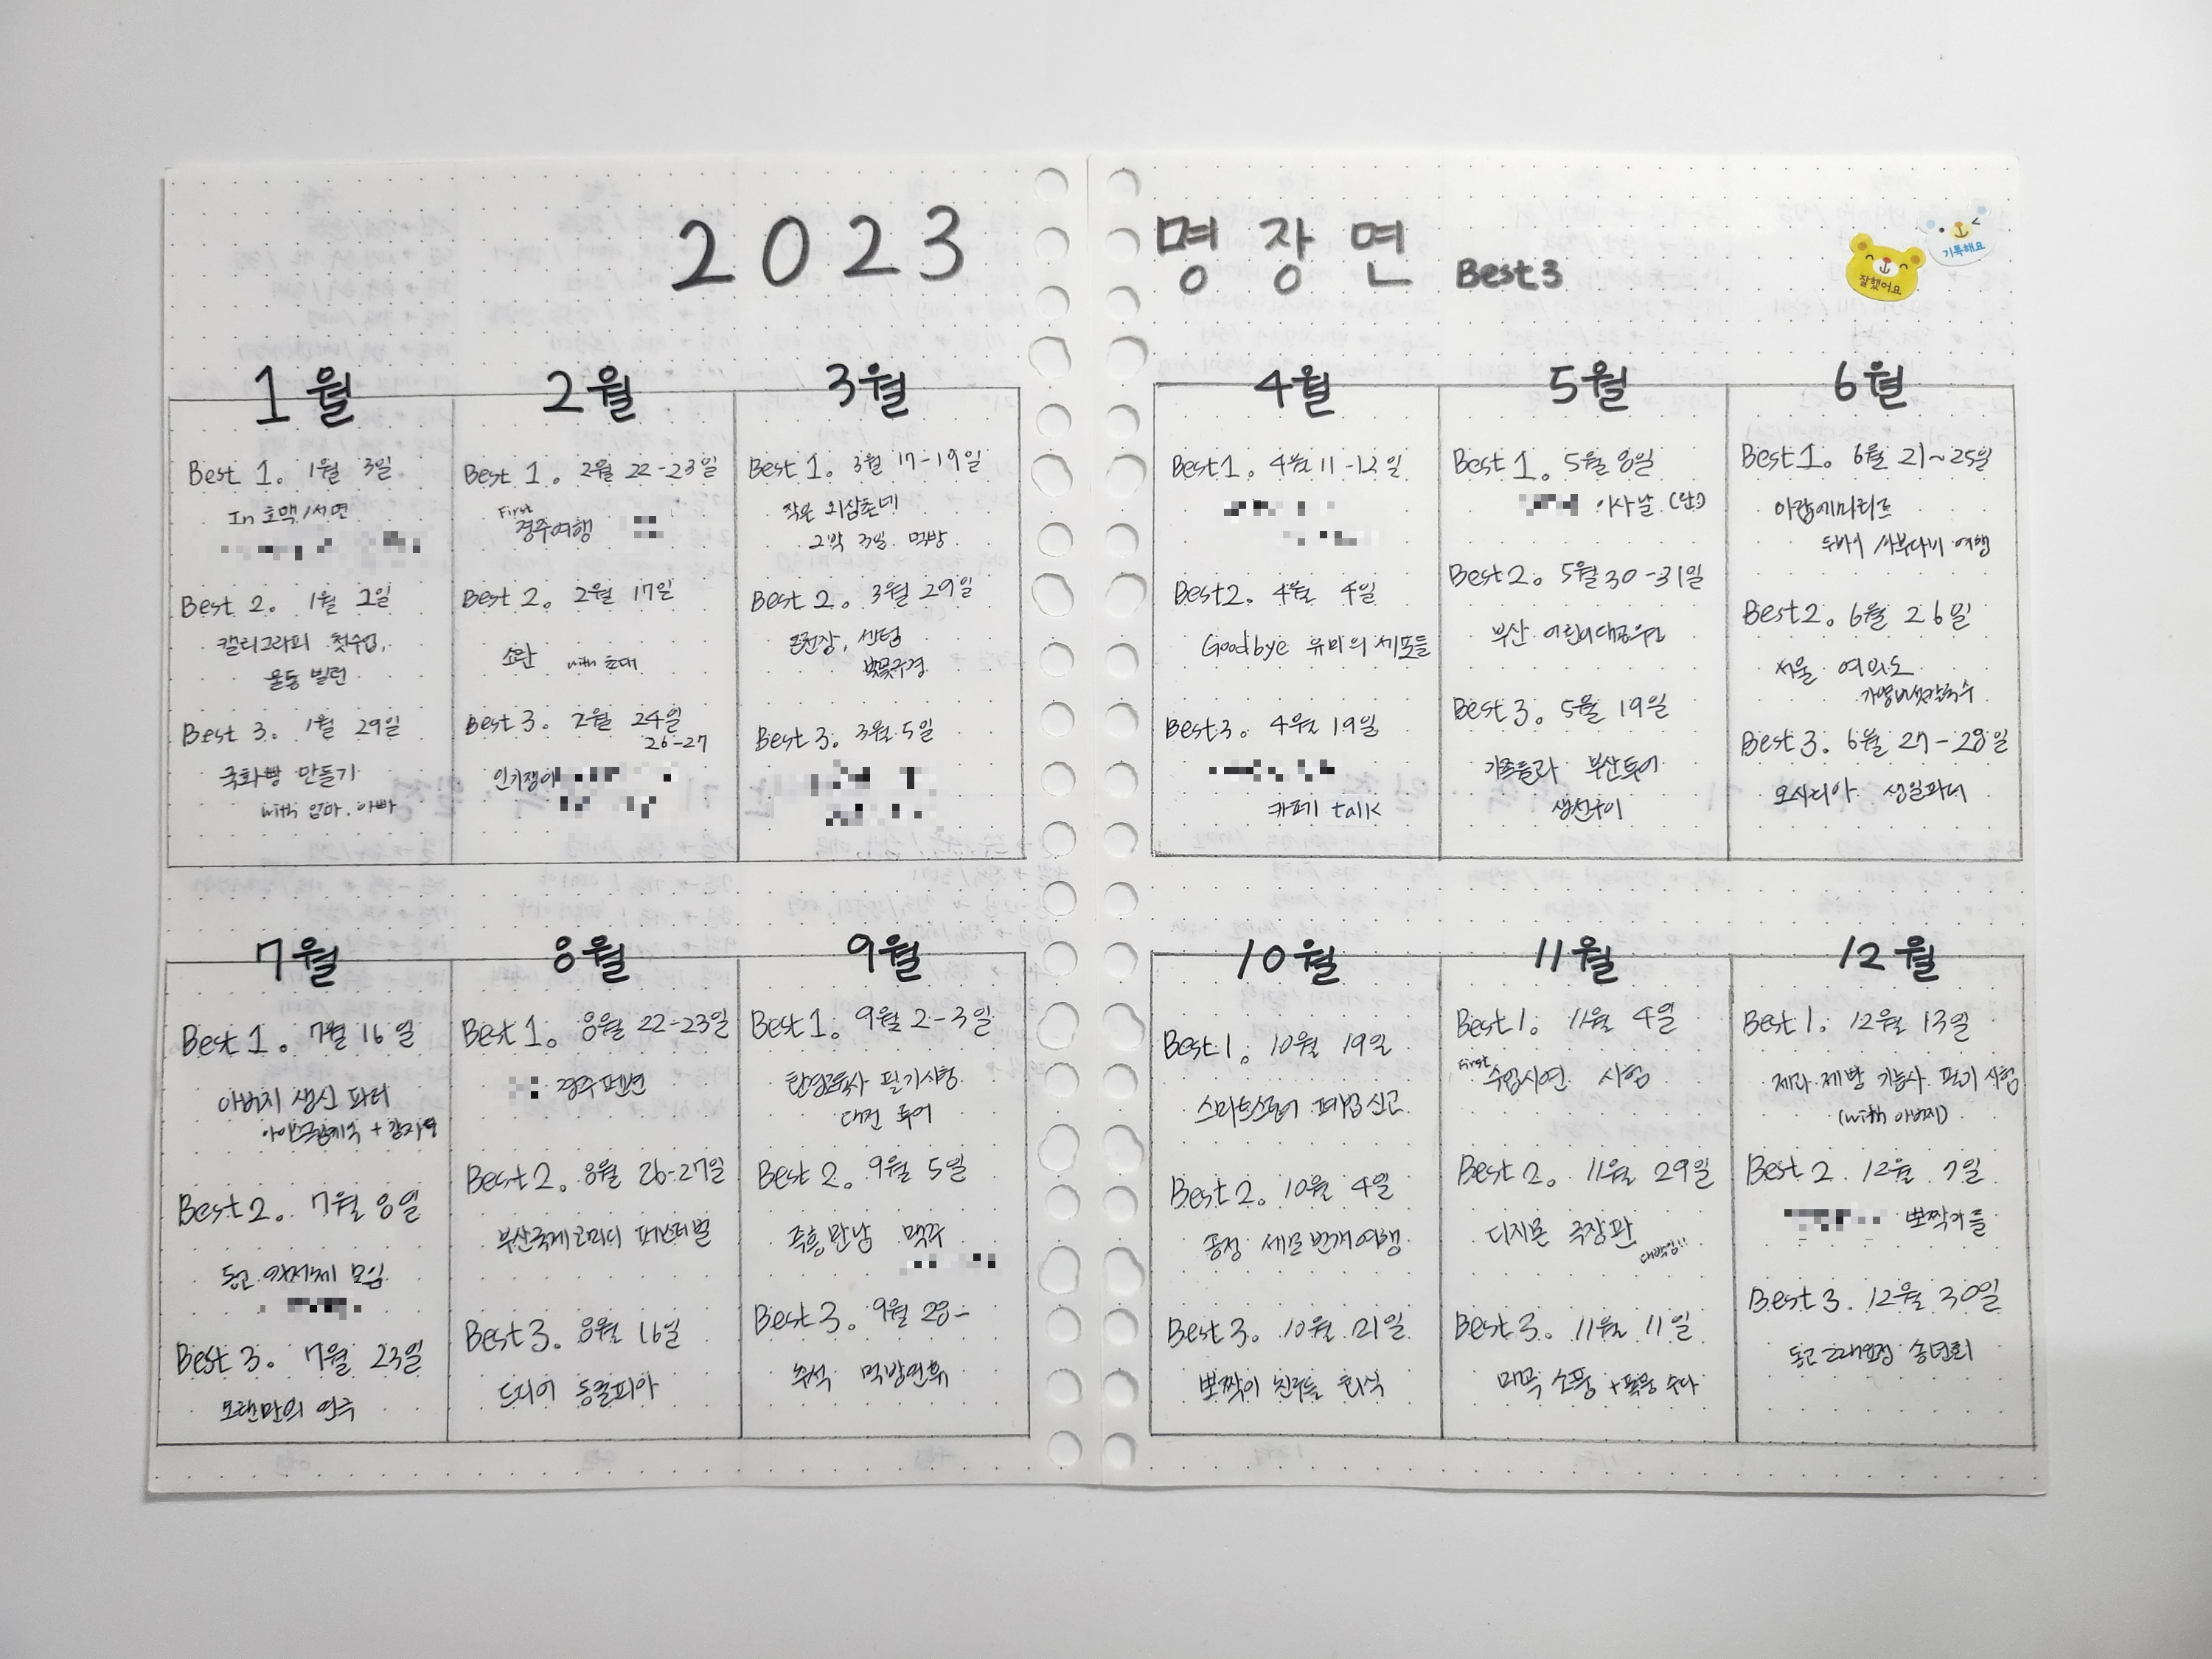 2023
명장면 Best3
잘했어요
기록해요
1월
Best 1. 1월 3일
In 호맥/서면
Best 2. 1월 2일
캘리그라피 첫수업,
운동 빌런
Best 3. 1월 29일
국화빵 만들기
with 엄마, 아빠
2월
Best 1. 2월 22-23일
First
경주여행
Best 2. 2월 17일
소란 with 초대
Best 3. 2월 24일
26-27
인기쟁이
3월
Best 1. 3월 17-19일
작은 외삼촌네
2박 3일 먹방
Best 2. 3월 29일
센텀
벚꽃구경
Best 3. 3월 5일
4월
Best1. 4월 11-12일
Best2. 4월 4일
Goodbye 유미의 세포들
Best3. 4월 19일
카페 talk
5월
Best 1. 5월 8일
이사날
Best2. 5월 30-31일
부산 어린이대공원
Best 3. 5월 19일
부산투어
생선구이
6월
Best1. 6월 21~25일
아랍에미리트
두바이/아부다비 여행
Best2. 6월 26일
서울 여의도
가영버섯칼국수
Best3. 6월 27-28일
오시리아 생일파티
7월
Best 1. 7월 16일
아버지 생신 파티
아이스크림케익 +
Best2. 7월 8일
동고 모임
Best 3. 7월 23일
오랜만의 연주
8월
Best 1. 8월 22-23일
경주펜션
Best2. 8월 26-27일
부산국제코미디 페스티벌
Best3. 8월 16일
드디어 동물피아
9월
Best1. 9월 2-3일
환경교육사 필기시험
대전 투어
Best 2. 9월 5일
즉흥만남 맥주
Best3. 9월 28-
추석 먹방연휴
10월
Best1. 10월 19일
스마트스토어 폐업신고
Best2. 10월 4일
세모 번개여행
Best3. 10월 21일
뽀짝이 친구들 회식
11월
Best1. 11월 4일
First
수업시연 시험
Best 2. 11월 29일
디지몬 극장판
대박임!!
Best3. 11월 11일
소풍 + 폭풍 수다
12월
Best1. 12월 13일
제과 제빵 기능사 필기 시험
(with 아버지)
Best 2. 12월 7일
뽀짝이들
Best 3. 12월 30일
동고 송년회